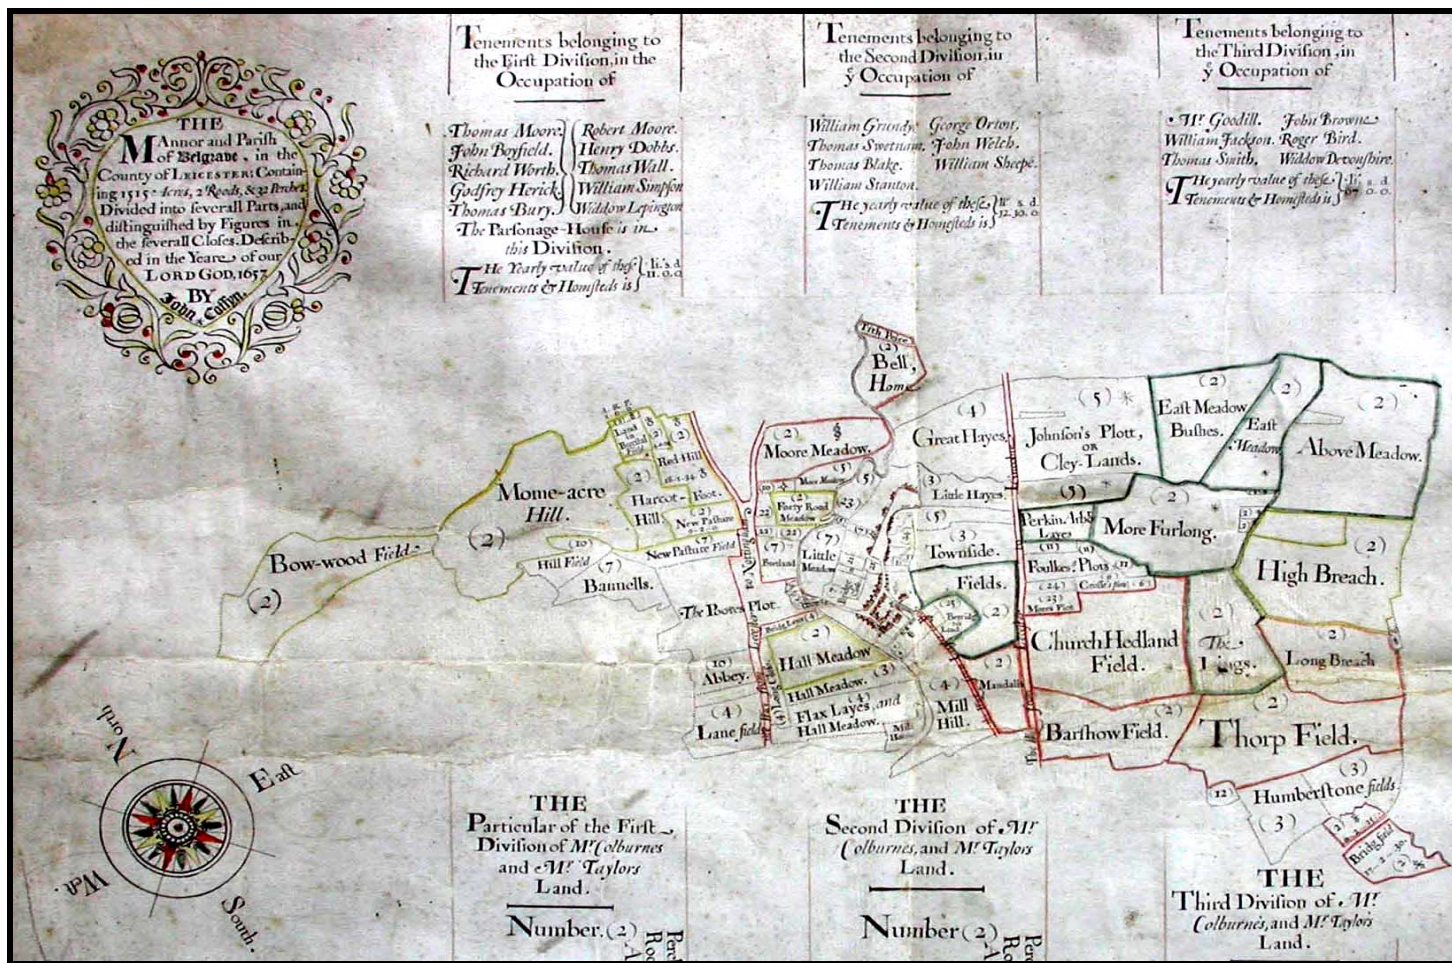 THE
MAnnor and Parish
of Belgrave, in the
County of LEICESTER: Contain-
ing 1515 Acres, 2 Roods, & 32 Perches
Divided into severall Parts, and
distinguished by Figures in
the severall Closes. Describ-
ed in the Yeare of our
LORD GOD, 1657
BY
John Coffyn.
Tenements belonging to
the First Division, in the
Occupation of
Thomas Moore. Robert Moore.
John Boyfield. Henry Dobbs.
Richard Worth. Thomas Wall.
Godfrey Herick William Simpson
Thomas Bury. Widdow Lepington
The Parsonage-House is in
this Division.
THe Yearly value of these li. s. d
Tenements & Homsteds is 11. 0. 0
Tenements belonging to
the Second Division, in
ye Occupation of
William Grundy. George Orton.
Thomas Swetnam. John Welch.
Thomas Blake. William Sheepe.
William Stanton.
THe yearly value of these li. s. d.
Tenements & Homesteds is 12. 10. 0
Tenements belonging to
the Third Division, in
ye Occupation of
Mr Goodill. John Browne
William Jackson. Roger Bird.
Thomas Smith. Widdow Devonshire.
THe yearly value of these li. s. d.
Tenements & Homesteds is 07. 0. 0
(2)
Bell
Home
(2)
Moore Meadow.
(5)
(5)
(4)
Great Hayes.
(5)
Johnson's Plott,
OR
Cley-Lands.
(5)
(2)
East Meadow
Bushes.
(2)
East
Meadow
(2)
Above Meadow.
Land
Field
(2)
(2)
Red-Hill
(2)
Harcot-Foot.
Hill
(2)
New Pasture
(7)
New Pasture Field
Mome-acre
Hill.
(2)
Bow-wood Field
(2)
(10)
Hill Field
(7)
Bannells.
(2)
Forty Rood
Meadow
(23)
22
(22)
(7)
(7)
Little
Meadow
(3)
Little Hayes.
(5)
(3)
Townside.
Fields.
(2)
(25)
Perkin
Layes
(2)
More Furlong.
(11) (11)
Foulkes Plots
(24)
(23)
Mores Plot
(2)
High Breach.
The Poores Plot.
(2)
Hall Meadow
(3)
Hall Meadow.
(4)
Flax Layes, and
Hall Meadow.
(10)
Abbey.
(4)
Lane field
(4)
Mill
Hill.
(2)
Church Hedland
Field.
(2)
The
Lings.
(2)
Long Breach
(2)
Barshow Field.
(2)
Thorp Field.
(3)
12
Humberstone fields
(3)
Bridg field
(2)
North
East
South.
West.
THE
Particular of the First
Division of Mr Colburnes
and Mr Taylors
Land.
Number. (2)
THE
Second Division of Mr
Colburnes, and Mr Taylors
Land.
Number (2)
THE
Third Division of Mr
Colburnes, and Mr Taylors
Land.